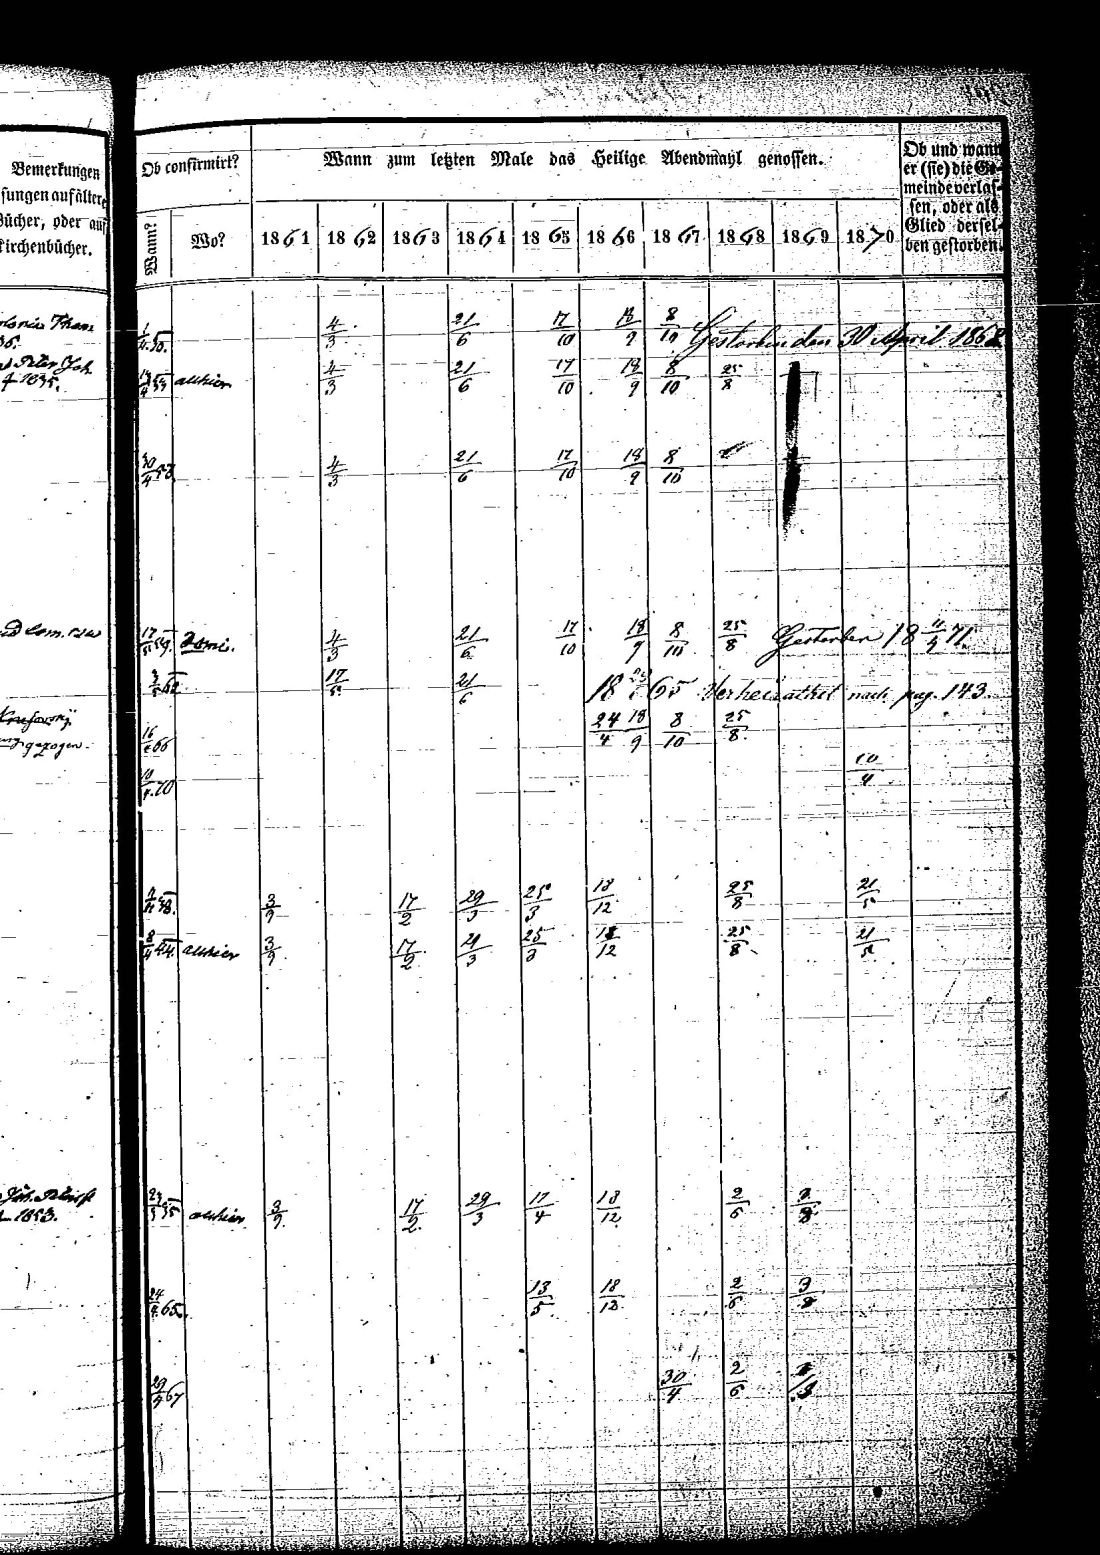 Bemerkungen
sungen auf ältere
Bücher, oder aus
Kirchenbücher.
Ob confirmirt?
Wann?
Wo?
Wann zum letzten Male das Heilige Abendmahl genossen.
1861 1862 1863 1864 1865 1866 1867 1868 1869 1870
Ob und wann
er (sie) die Ge-
meinde verlas-
sen, oder als
Glied dersel-
ben gestorben.
4/3 21/6 17/10 18/9 8/10 Gestorben den 30 April 1868
Peter Joh.
4 1835. allhier 4/3 21/6 17/10 18/9 8/10 25/8
30/4 53 4/3 21/6 17/10 18/9 8/10
17/5 59. Domi. 4/3 21/6 17/10 18/9 8/10 25/8 Gestorben 18 11/4 71.
17/5 21/6 18 65 Verheirathet nach pag. 143.
gezogen. 16/4 66 24/4 18/9 8/10 25/8
10/4 70 10/4
58. 3/9 17/2 29/3 25/3 18/12 25/8 21/5
8/4 44. allhier 3/9 17/2 21/3 25/3 18/12 25/8 21/5
1853. allhier 3/9. 17/2. 29/3 17/4 18/12 2/6 3/8
24/4 65. 13/5 18/12 2/6 3/8
67 30/4 2/6